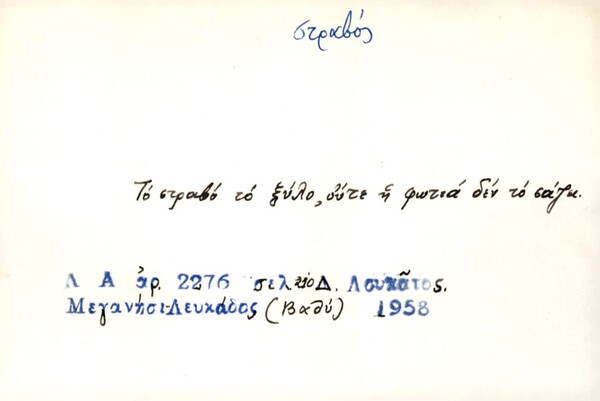 στραβός
Τό στραβό τό ξύλο, οὔτε ἡ φωτιά δέν τό σάζει.
Λ Α ἀρ. 2276 σελ. 210 Δ. Λουκᾶτος.
Μεγανήσι-Λευκάδος (Βαθύ) 1958